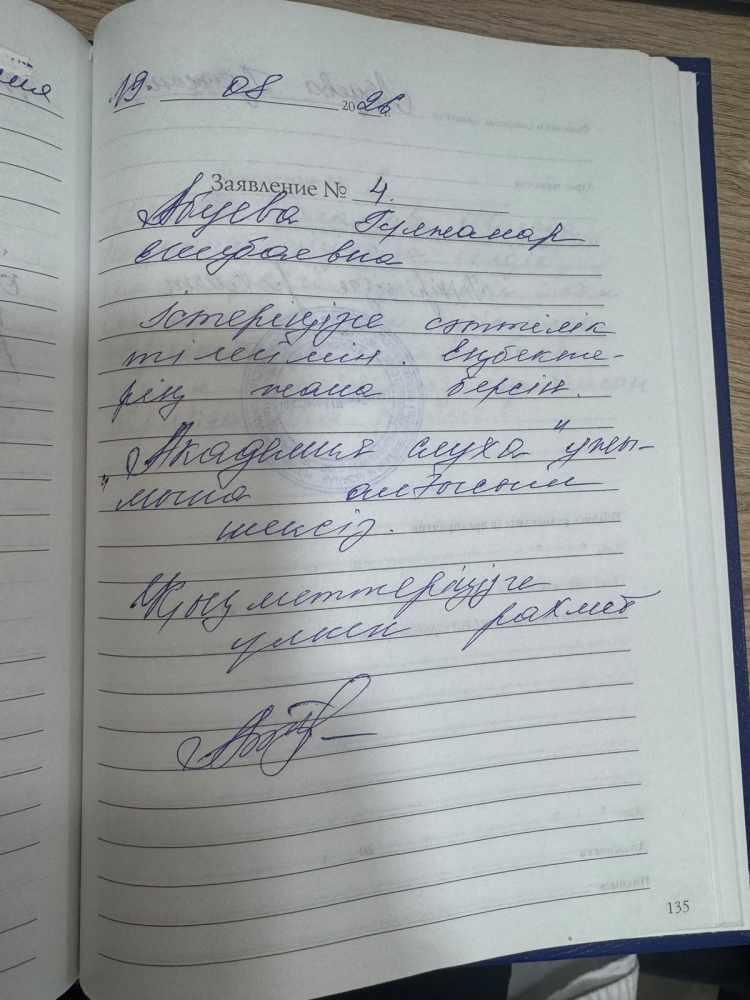 19. 08 2026
Заявление № 4.
Абуева Гулжанар
Істеріңізге сәттілік
тілеймін. Еңбекте-
рің жана берсін.
"Академия слуха" ұжы-
мына алғысым
шексіз.
Қызметтеріңізге
үлкен рахмет
135